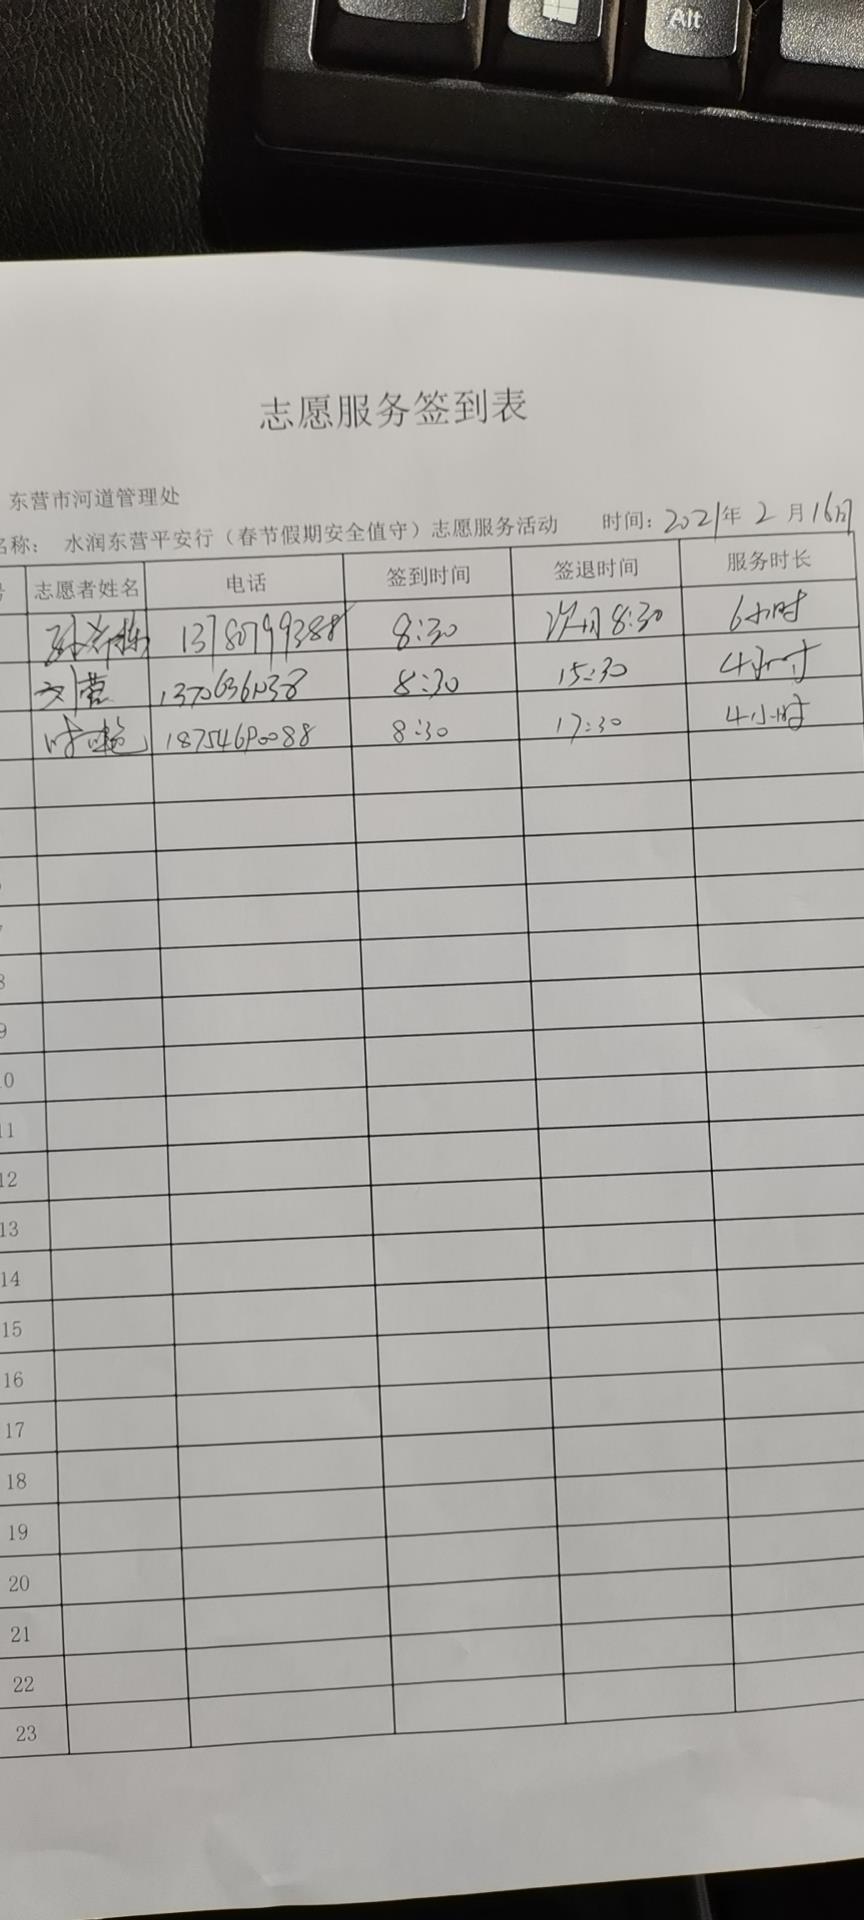 Alt
志愿服务签到表
东营市河道管理处
名称： 水润东营平安行（春节假期安全值守）志愿服务活动 时间：2021年 2 月 16日
号 志愿者姓名 电话 签到时间 签退时间 服务时长
13780799388 8:30 次日8:30 6小时
刘营 8:30 15:30 4小时
18754690088 8:30 17:30 4小时
8
9
10
11
12
13
14
15
16
17
18
19
20
21
22
23